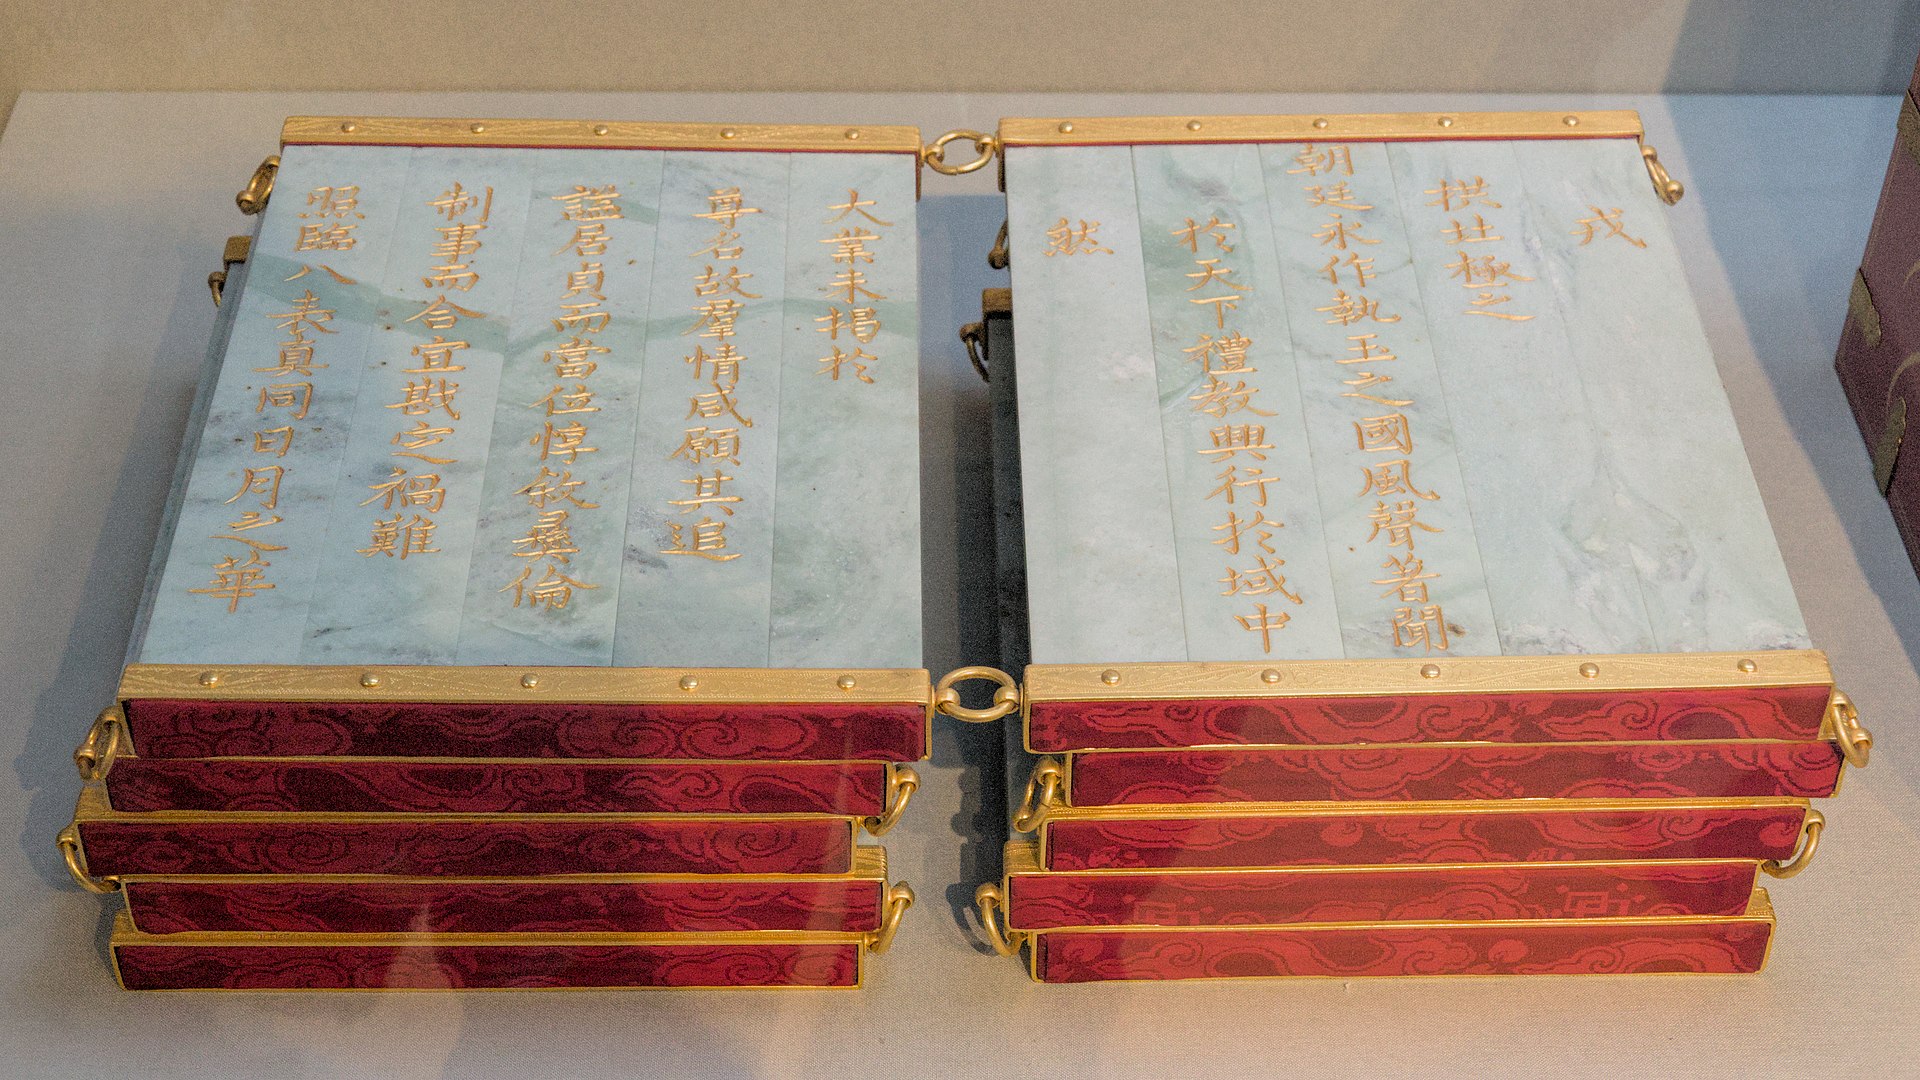 戎
拱北極之
朝廷永作執玉之國風聲著聞
於天下禮教興行於域中
然
大業未揭於
尊名故羣情咸願其追
謚居貞而當位惇敘彝倫
制事而合宜戡定禍難
照臨八表真同日月之華